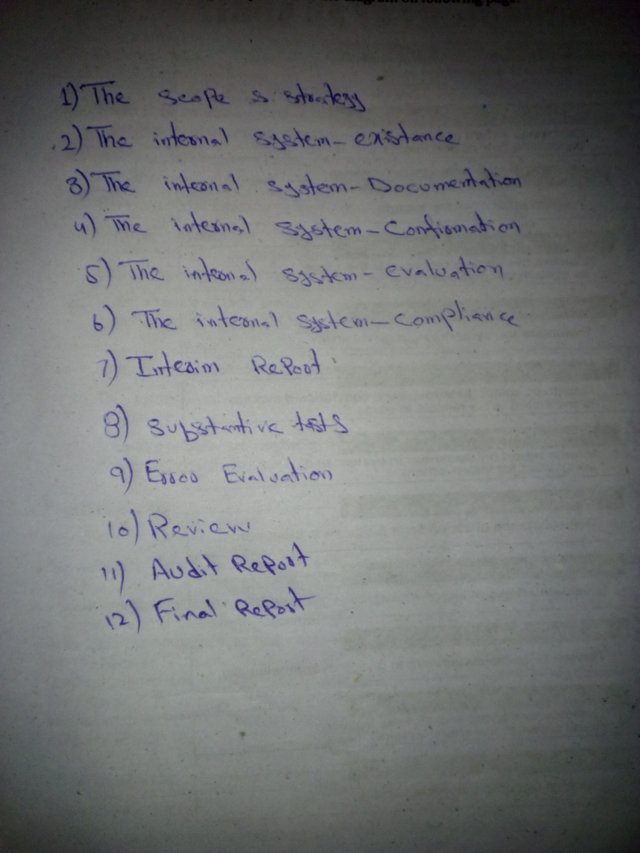 diagram on following page.
1) The scope & strategy
2) The internal system- existance
3) The internal system- Documentation
4) The internal system- Confirmation
5) The internal system- evaluation
6) The internal system- compliance
7) Interim Report
8) Substantive tests
9) Error Evaluation
10) Review
11) Audit Report
12) Final Report